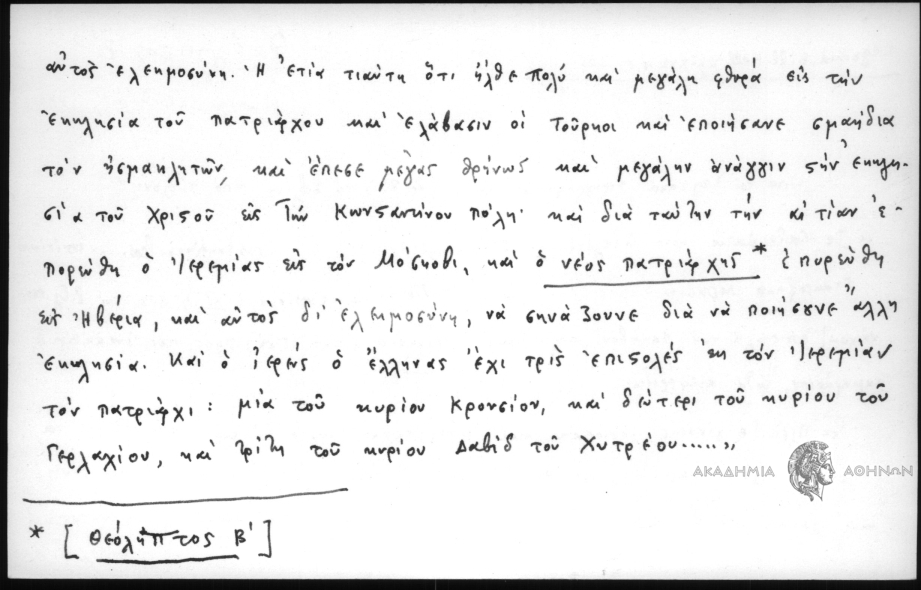 αὐτὸς ἐλεημοσύνη. Ἡ ἐτία τιαύτη ὅτι ἦλθε πολὺ καὶ μεγάλη φθορά εἰς τὴν
ἐκκλησία τοῦ πατριάρχου καὶ ἐλάβασιν οἱ Τοῦρκοι καὶ ἐποιήσανε σμαήδια
τὸν ἠσμακλητῶν, καὶ ἔπεσε μέγας θρήνως καὶ μεγάλην ἀνάγγιν στὴν ἐκκλη-
σία τοῦ Χριστοῦ εἰς τὴν Κωνσταντίνου πόλη· καὶ διὰ ταύτην τὴν αἰτίαν ἐ-
πορεύθη ὁ Ἱερεμίας εἰς τὸν Μόσκοβι, καὶ ὁ νέος πατριάρχης * ἐπυρεύθη
εἰς Ἠβέρια, καὶ αὐτὸς δι' ἐλεημοσύνη, νὰ σηνάξουνε διὰ νὰ ποιήσουνε ἄλλη
ἐκκλησία. Καὶ ὁ ἱερεὺς ὁ Ἕλληνας ἔχι τρὶς ἐπιστολές ἐκ τὸν Ἱερεμίαν
τὸν πατριάρχι: μία τοῦ κυρίου Κρουσίου, καὶ δεύτερι τοῦ κυρίου τοῦ
Γερλαχίου, καὶ τρίτη τοῦ κυρίου Δαβὶδ τοῦ Χυτρέου.....»
ΑΚΑΔΗΜΙΑ ΑΘΗΝΩΝ
* [Θεόληπτος Β']